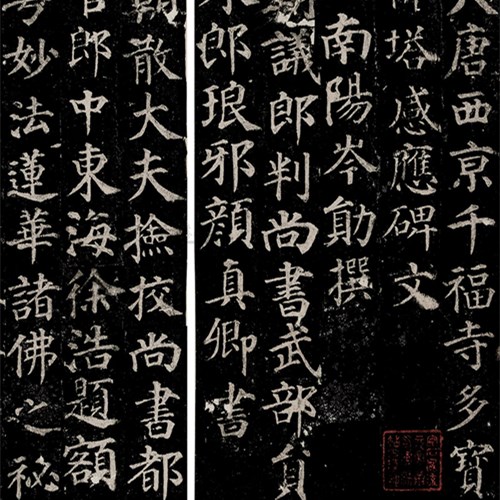 大唐西亰千福寺多寶
塔感應碑文
南陽岑勛撰
朝議郎判尚書武部員
郎琅邪顏真卿書
朝散大夫撿挍尚書都
官郎中東海徐浩題額
妙法蓮華諸佛之祕